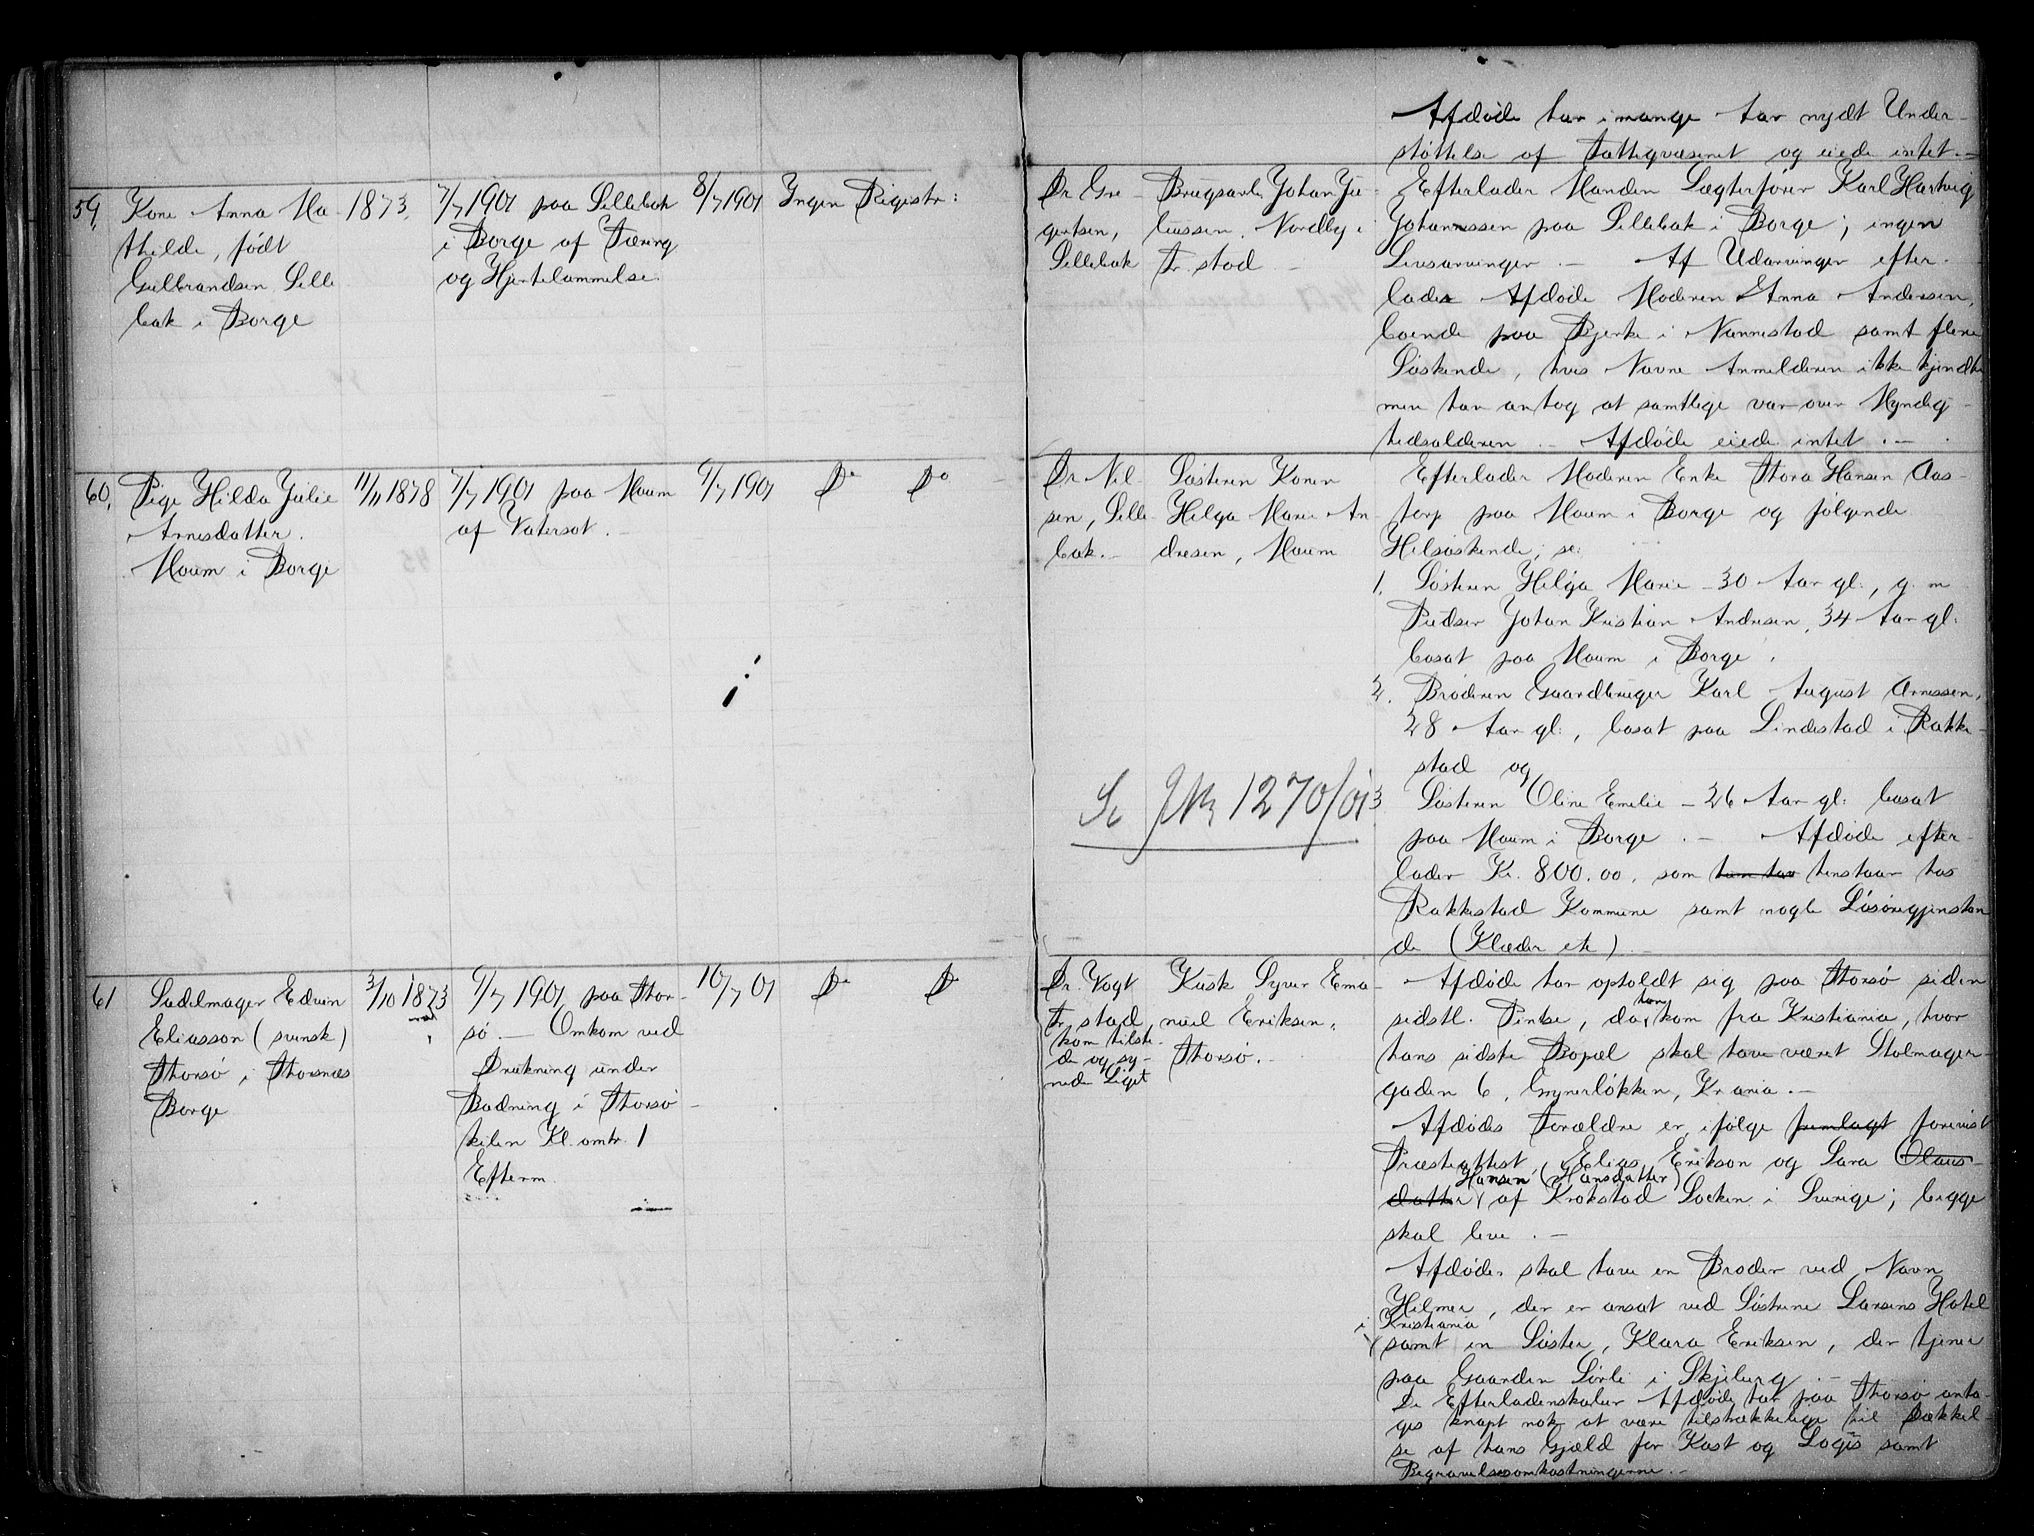 Afdøde har i mange Aar nydt Under-
støttelse af Fattigvæsenet og eiede intet. –
59,
Kone Anna Ma-
thilde, født
Gulbrandsen Lille
bak i Borge
1873,
7/7 1901 paa Lillebak
i Borge af Tæring
og Hjertelammelse.
8/7 1901
Ingen Registr:
Dr. Gre
gertsen,
Lillebak
Brugsarb. Johan Ju-
liussen, Nordby i
Fr.stad –
Efterlader Manden Lægterfører Karl Hartvig
Johannessen paa Lillebak i Borge; ingen
Livsarvinger. – Af Udarvinger efter-
lader Afdøde Moderen Anna Andersen,
boende paa Bjerke i Nannestad samt flere
Søskende, hvis Navne Anmelderen ikke kjendte
men han antog at samtlige var over Myndig-
hedsalderen. – Afdøde eiede intet. –
60,
Pige Hilda Julie
Arnesdatter.
Moum i Borge
11/11 1878
7/7 1901 paa Moum
af Vatersot. –
9/7 1901
Do
Do
Dr. Nil-
sen, Lille-
bak. –
Søsteren Konen
Helga Marie An
dresen, Moum
Efterlader Moderen Enke Thora Hansen Aas-
torp paa Moum i Borge og følgende
Helsøskende, se:
1. Søsteren Helga Marie – 30 Aar gl., g. m
Pudser Johan Kristian Andresen, 34 Aar gl.
bosat paa Moum i Borge,
2. Broderen Gaardbruger Karl August Arnessen,
28 Aar gl., bosat paa Lindestad i Rakke-
stad og
3 Søsteren Oline Emilie – 26 Aar gl. bosat
paa Moum i Borge. – Afdøde efter-
lader Kr. 800.00, som han har henstaar hos
Rakkestad Kommune samt nogle Løsøregjenstan
de (Klæder etc) –
Se JNr 1270/01
61
Sadelmager Edvin
Eliasson (svensk)
Thorsø i Thorsnæs
Borge
3/10 1873
9/7 1901 paa Thor-
sø. – Omkom ved
Drukning under
Badning i Thorsø-
kilen Kl. omtr. 1
Efterm.
10/7 01
Do
Do
Dr. Vogt
Fr.stad,
kom tilste-
de og sy-
nede Liget
Kusk Syver Ema-
nuel Eriksen,
Thorsø. –
Afdøde har opholdt sig paa Thorsø siden
sidstl. Pintse, da han kom fra Kristiania, hvor
hans sidste Bopæl skal have været Stolmager-
gaden 6, Grynerløkken, Kr.ania. –
Afdødes Forældre er, ifølge fremlagt forevist
Præsteattest, Elias Erikson og Sara Olaus-
datter Hansen (Hansdatter) af Krokstad Socken i Sverige; begge
skal leve. –
Afdøde skal have en Broder ved Navn
Hilmer, der er ansat ved Søstrene Larsens Hotel
i Kristiania
samt en Søster, Klara Eriksen, der tjener
paa Gaarden Sørli i Skjeberg. –
De Efterladenskaber Afdøde har paa Thorsø anta-
ges knapt nok at være tilstrækkelige til Dækkel-
se af hans Gjæld for Kost og Logis samt
Begravelsesomkostningerne. –